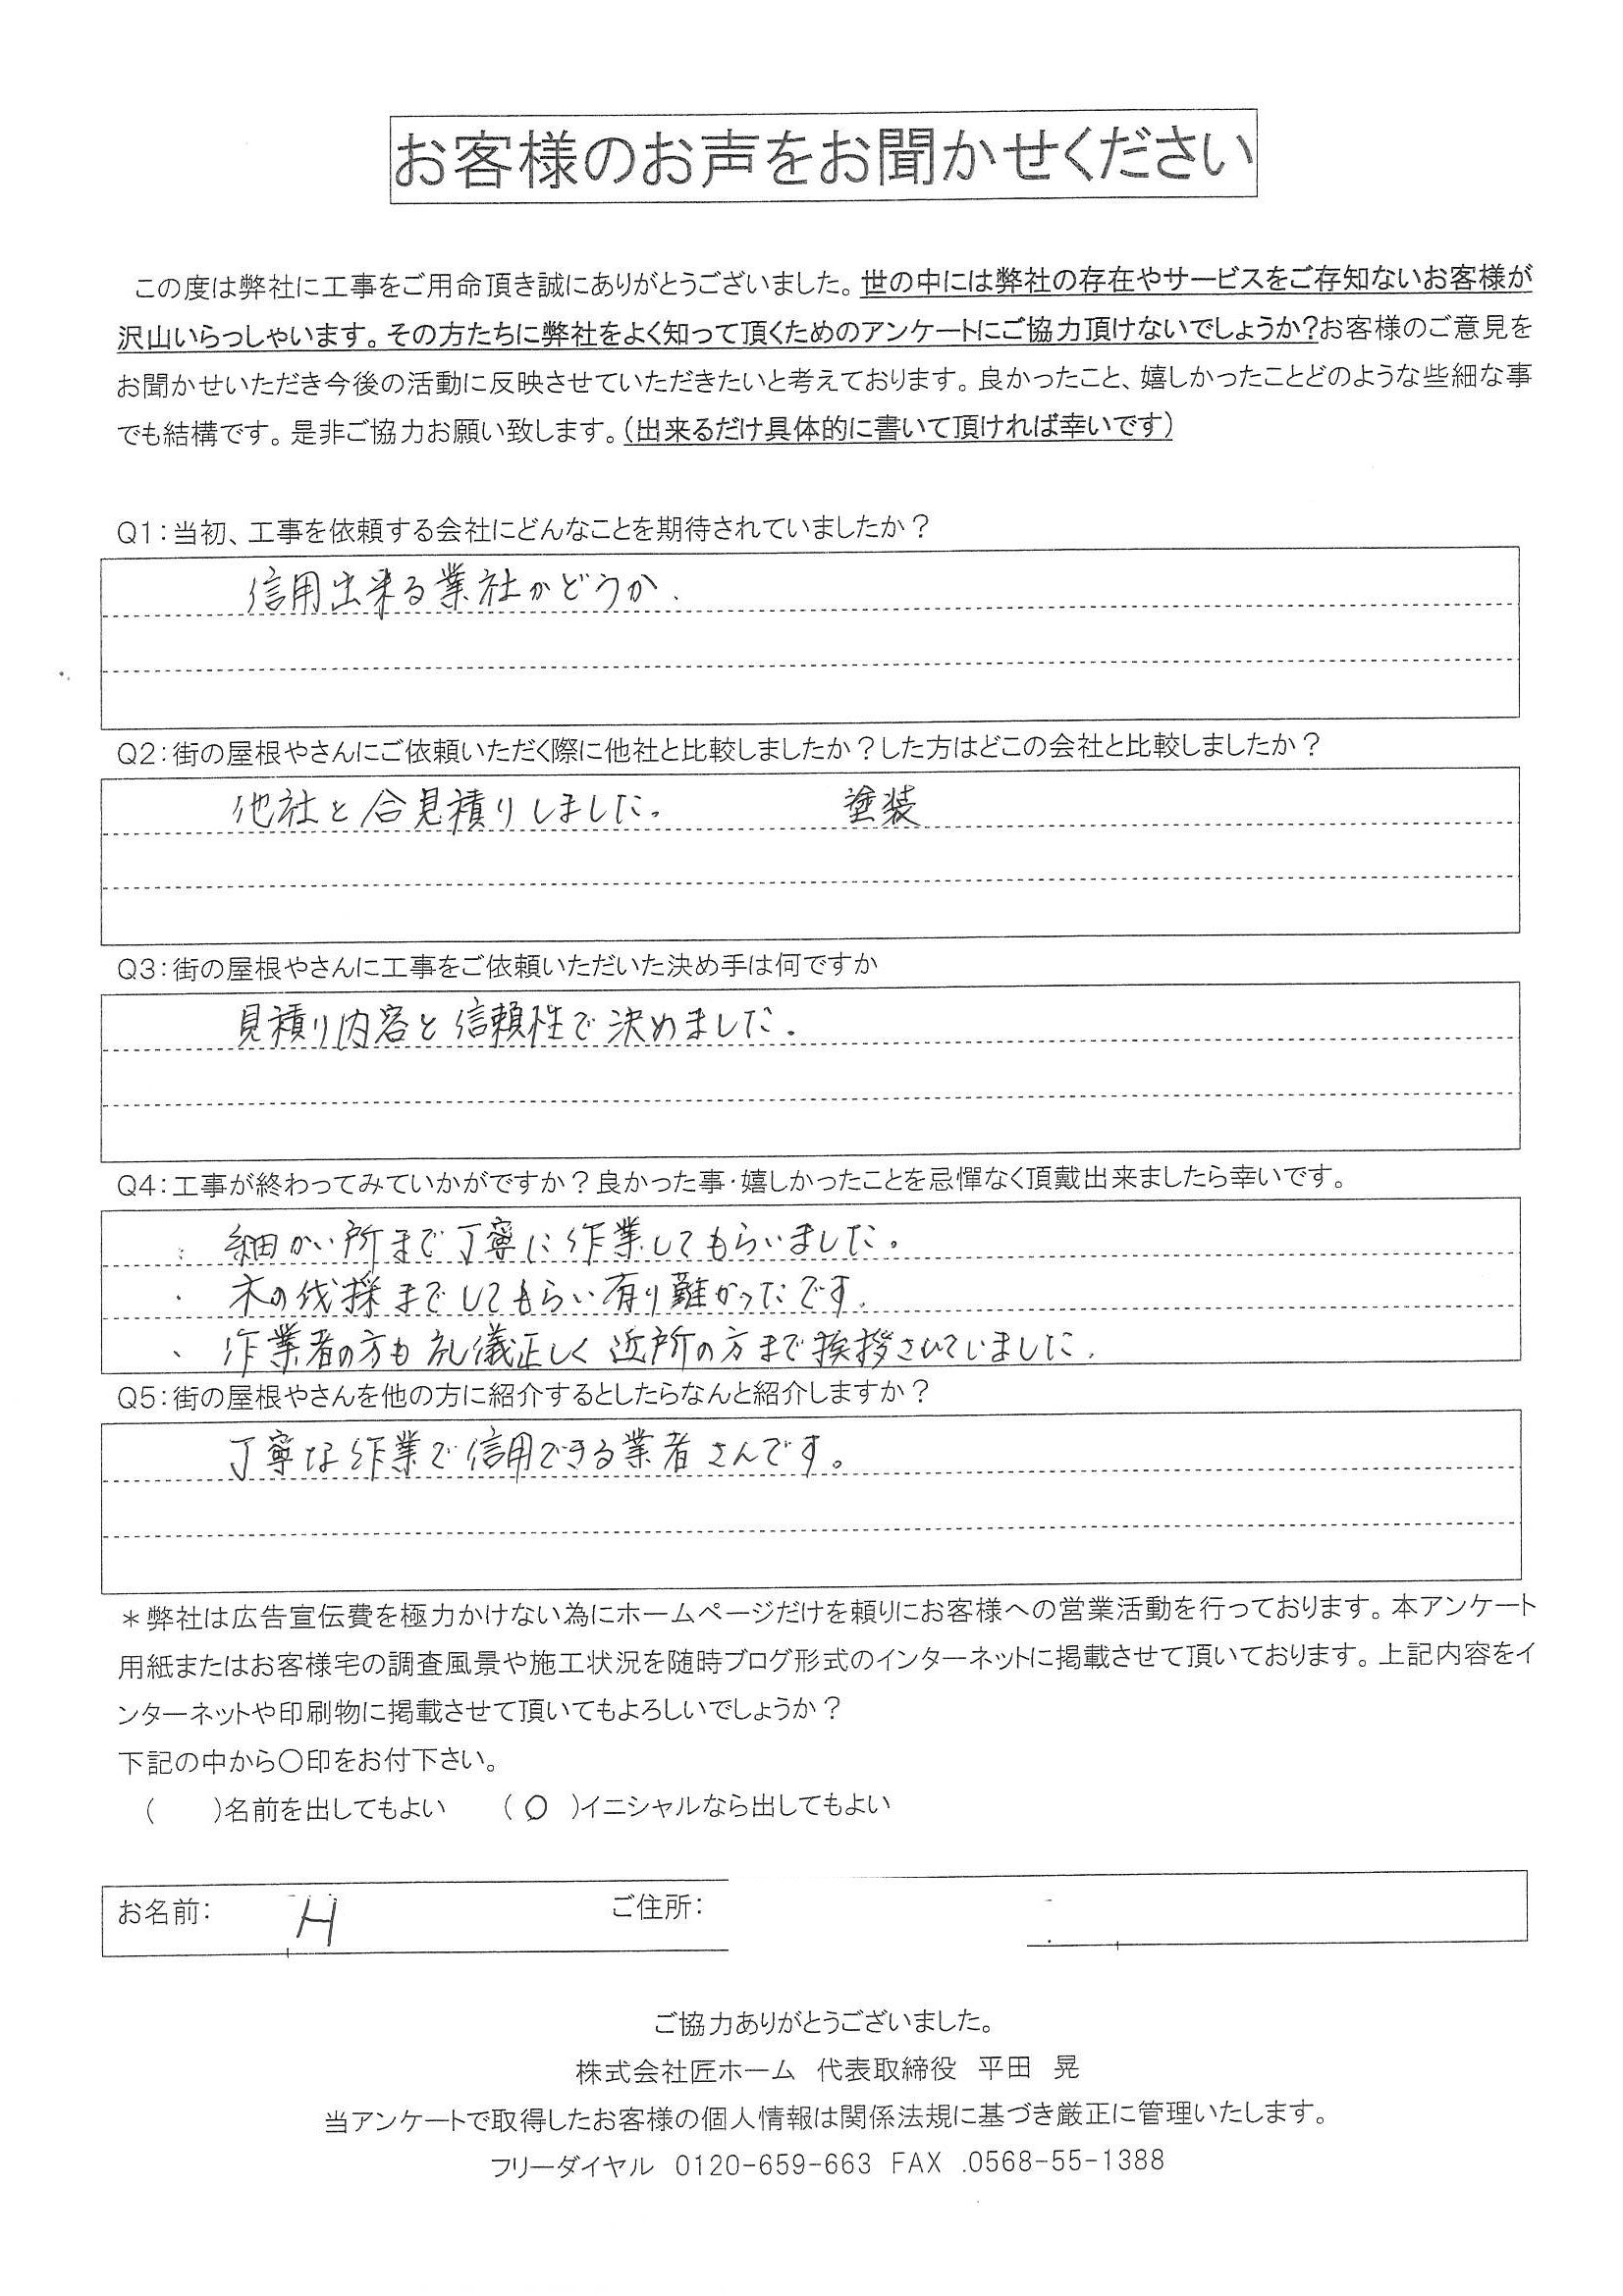 お客様のお声をお聞かせください
この度は弊社に工事をご用命頂き誠にありがとうございました。世の中には弊社の存在やサービスをご存知ないお客様が
沢山いらっしゃいます。その方たちに弊社をよく知って頂くためのアンケートにご協力頂けないでしょうか?お客様のご意見を
お聞かせいただき今後の活動に反映させていただきたいと考えております。良かったこと、嬉しかったことどのような些細な事
でも結構です。是非ご協力お願い致します。(出来るだけ具体的に書いて頂ければ幸いです)
Q1:当初、工事を依頼する会社にどんなことを期待されていましたか?
信用出来る業社かどうか.
Q2:街の屋根やさんにご依頼いただく際に他社と比較しましたか?した方はどこの会社と比較しましたか?
他社と合見積りしました。 塗装
Q3:街の屋根やさんに工事をご依頼いただいた決め手は何ですか
見積り内容と信頼性で決めました.
Q4:工事が終わってみていかがですか?良かった事・嬉しかったことを忌憚なく頂戴出来ましたら幸いです。
・細かい所まで丁寧に作業してもらいました。
・木の伐採までしてもらい有り難かったです.
、作業者の方も礼儀正しく近所の方まで挨拶されていました.
Q5:街の屋根やさんを他の方に紹介するとしたらなんと紹介しますか?
丁寧な作業で信用できる業者さんです。
＊弊社は広告宣伝費を極力かけない為にホームページだけを頼りにお客様への営業活動を行っております。本アンケート
用紙またはお客様宅の調査風景や施工状況を随時ブログ形式のインターネットに掲載させて頂いております。上記内容をイ
ンターネットや印刷物に掲載させて頂いてもよろしいでしょうか?
下記の中から○印をお付下さい。
(　　)名前を出してもよい　(○)イニシャルなら出してもよい
お名前: H ご住所:
ご協力ありがとうございました。
株式会社匠ホーム 代表取締役 平田 晃
当アンケートで取得したお客様の個人情報は関係法規に基づき厳正に管理いたします。
フリーダイヤル 0120-659-663 FAX .0568-55-1388